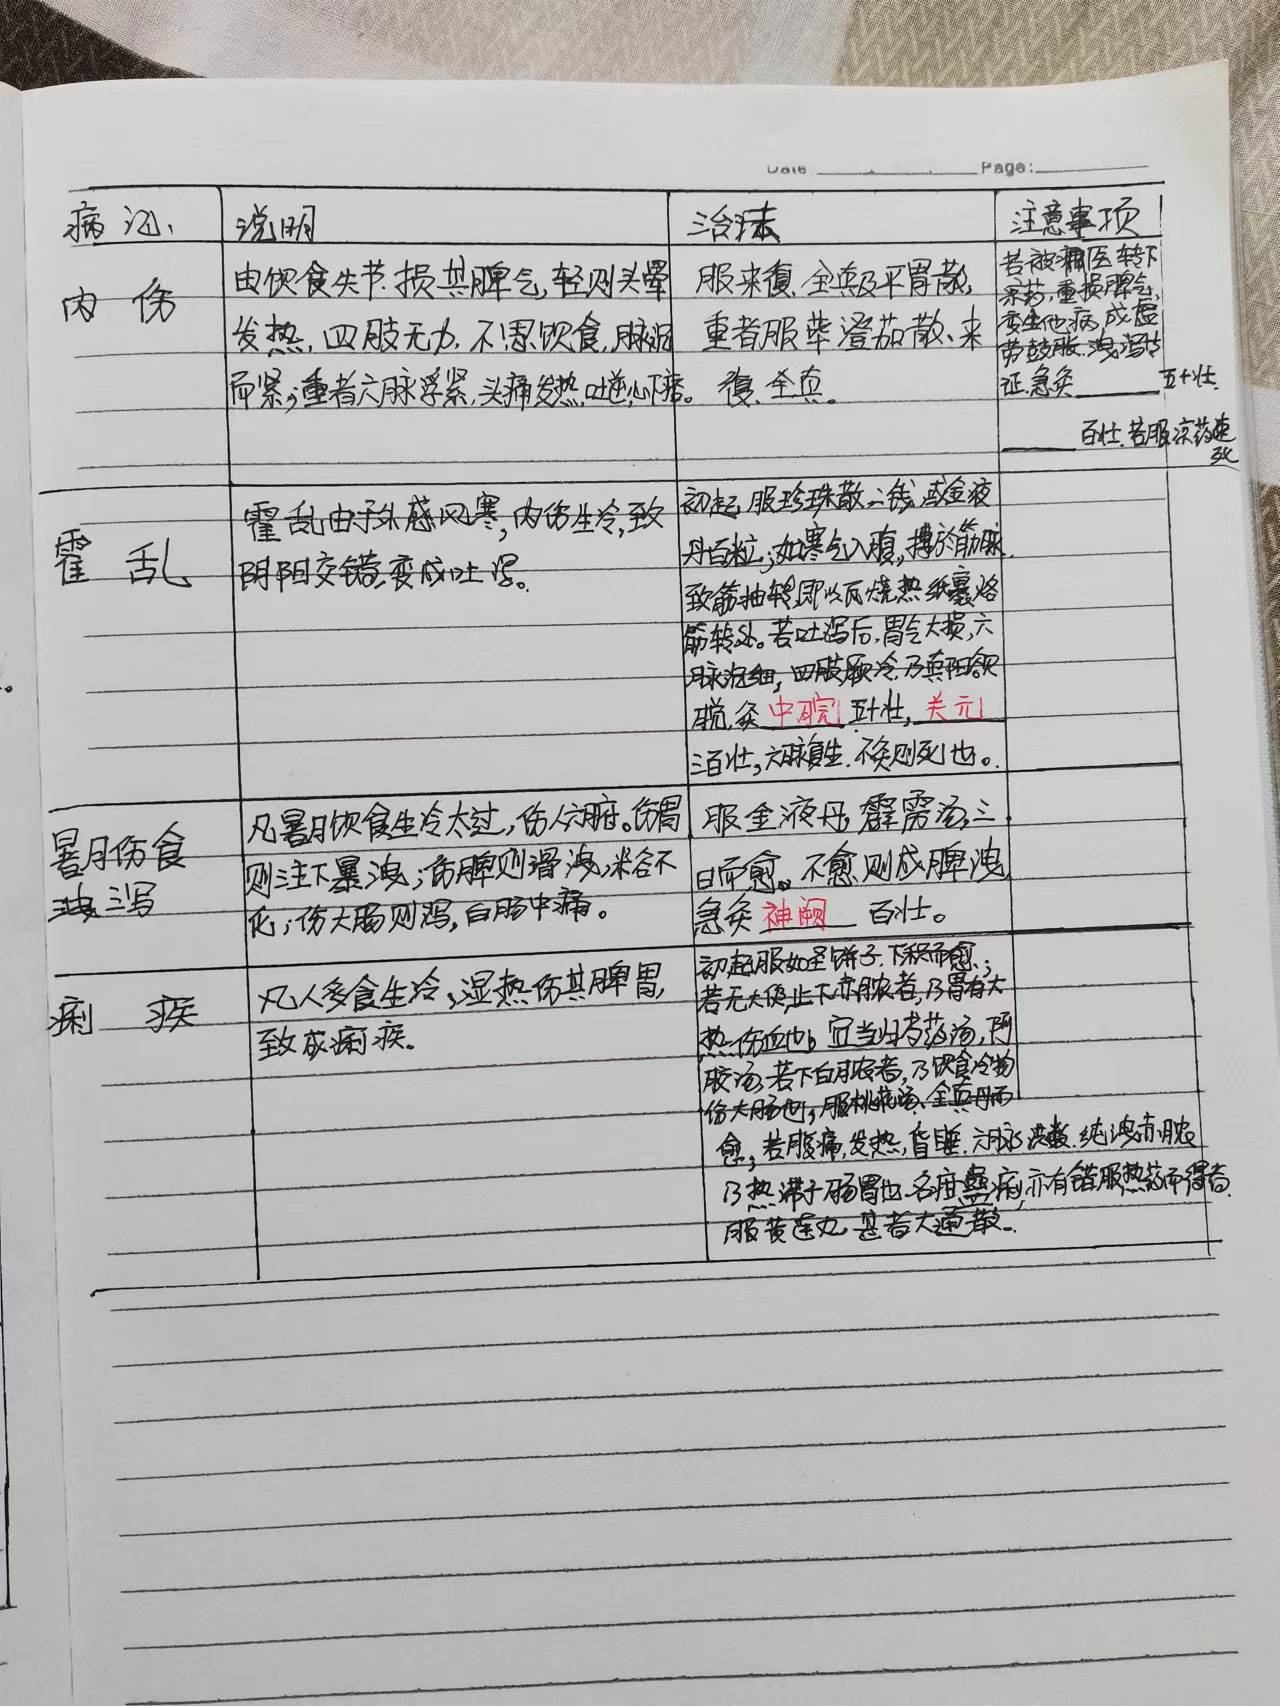 Date Page:
病证、 说明 治法 注意事项
内伤
由饮食失节、损其脾气,轻则头晕
发热,四肢无力,不思饮食,脉沉
而紧;重者六脉浮紧,头痛发热,吐逆,心下痞。
服来復、全真及平胃散,
重者服荜澄茄散、来
復、全真。
若被庸医转下
凉药,重损脾气,
变生他病,成虚
劳鼓胀、洩泻等
证,急灸____五十壮.
____百壮.若服凉药速
死
霍乱
霍乱由于外感风寒,内伤生冷,致
阴阳交错,变成吐泻。
初起服珍珠散二钱,或金液
丹百粒;如寒气入腹,搏於筋脉,
致筋抽转,即以瓦烧热纸裹烙
筋转处。若吐泻后,胃气大损,六
脉沉细,四肢厥冷,乃真阳欲
脱,灸中脘五十壮,关元
三百壮,六脉复生.不灸则死也。
暑月伤食
洩泻
凡暑月饮食生冷太过,伤人六腑。伤胃
则注下暴洩;伤脾则滑洩,米谷不
化;伤大肠则泻,白肠中痛。
服金液丹,霹雳汤,三
日而愈。不愈则成脾洩,
急灸神阙百壮。
痢疾
凡人多食生冷,湿热伤其脾胃,
致成痢疾.
初起服如圣饼子.下积而愈;
若无大便,止下赤脓者,乃胃有大
热伤血也,宜当归芍药汤,阿
胶汤.若下白脓者,乃饮食冷物
伤大肠也,服桃花汤、全真丹而
愈,若腹痛,发热,昏睡.六脉洪数.纯洩赤脓
乃热滞于肠胃也.名疳蛊病,亦有错服热药而得者.
服黄连丸,甚者大通散..